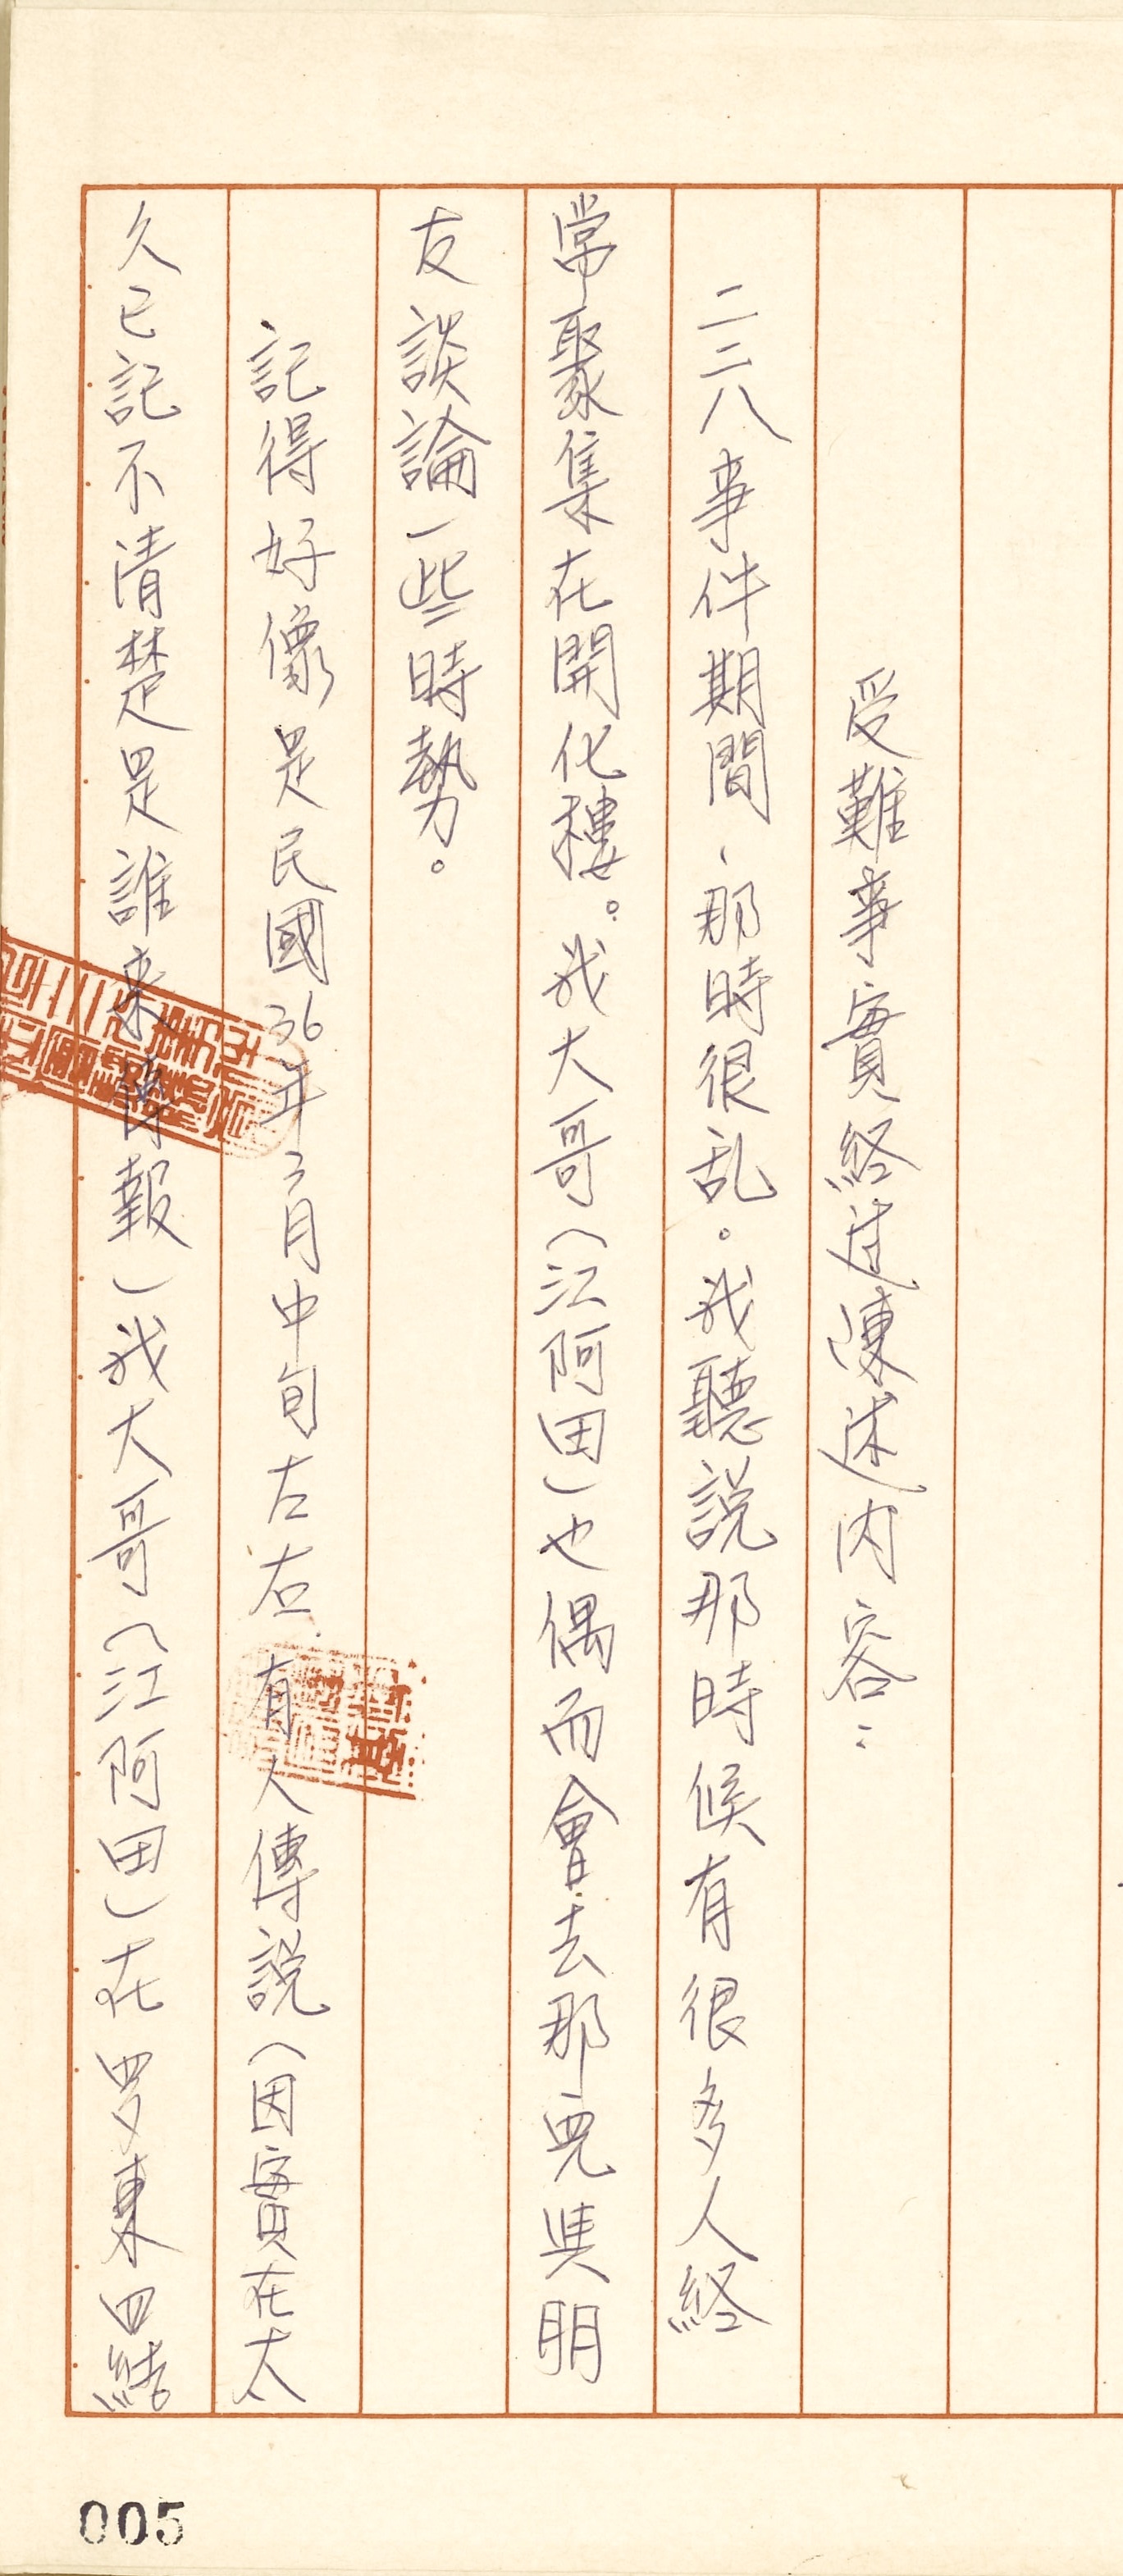 受難事實經過陳述內容：
二二八事件期間，那時很乱。我聽說那時候有很多人經
常聚集在開化樓。我大哥（江阿田）也偶而會去那兒與朋
友談論一些時勢。
記得好像是民國36年3月中旬左右，有人傳說（因實在太
久已記不清楚是誰來傳報）我大哥（江阿田）在罗東四結
005